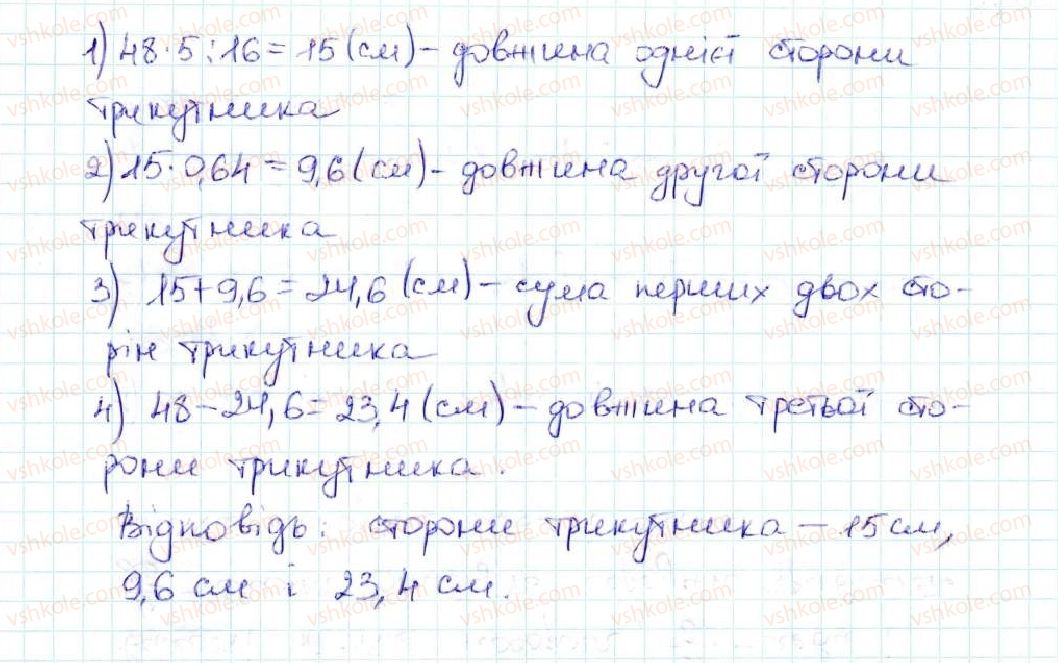 1) 48·5:16=15(см)- довжина однієї сторони
трикутника
2) 15·0,64=9,6(см)- довжина другої сторони
трикутника
3) 15+9,6=24,6(см)- сума перших двох сто-
рін трикутника
4) 48-24,6=23,4(см)- довжина третьої сто-
рони трикутника.
Відповідь: сторони трикутника – 15см,
9,6 см і 23,4 см.